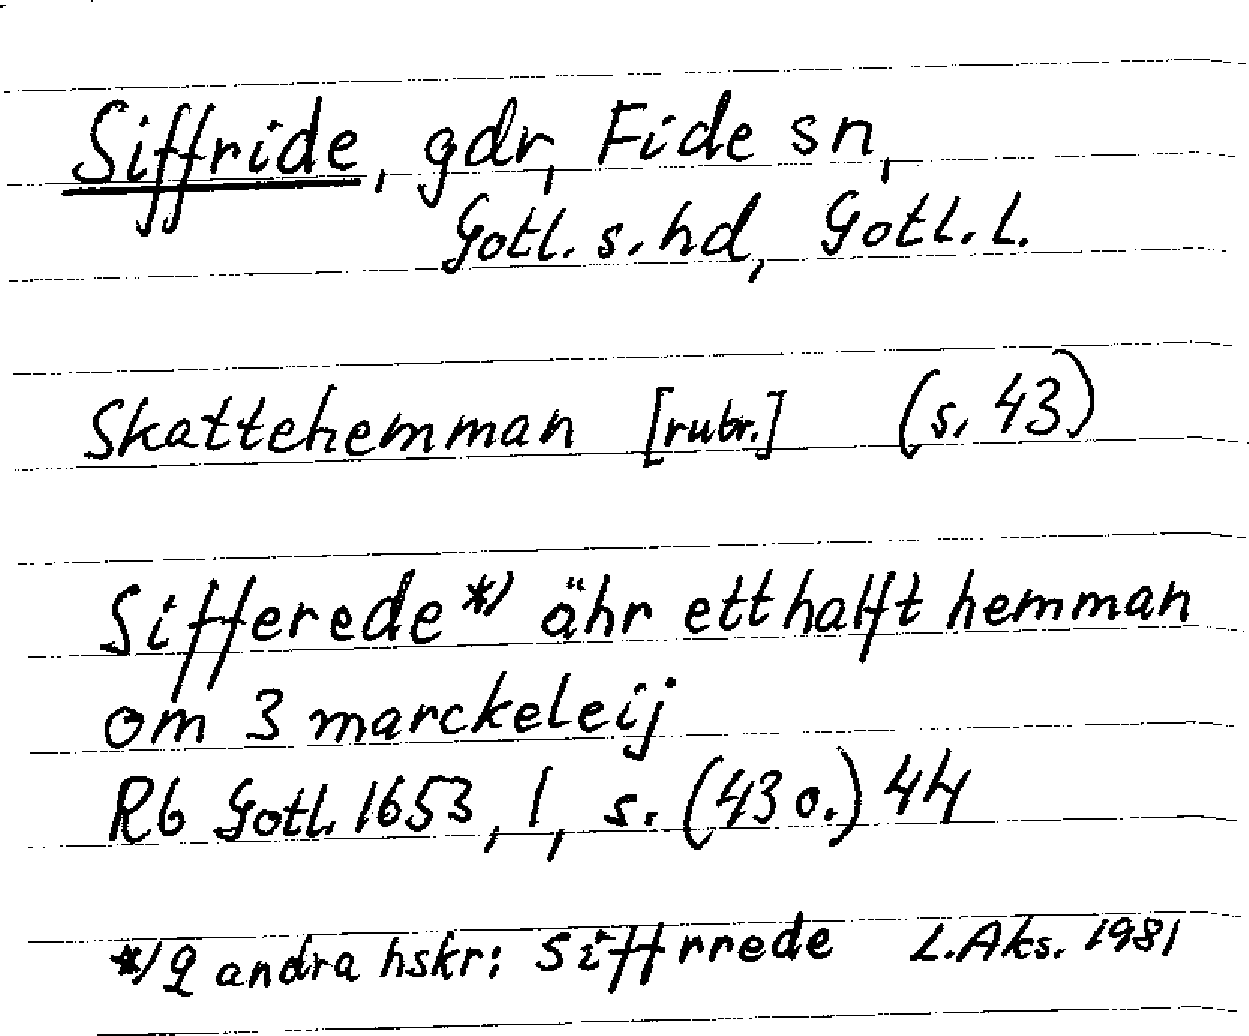 Siffride, gdr, Fide sn,
Gotl. s. hd, Gotl. l.
Skattehemman [rubr.] (s. 43)
Sifferede*) ähr ett halfft hemman
om 3 marckeleij
Rb Gotl. 1653, 1, s. (43 o.) 44
*) 2 andra hskr: Siffrrede L. Aks. 1981